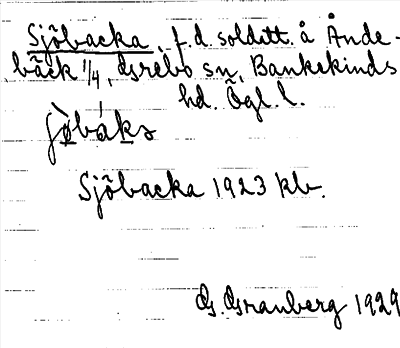 Sjöbacka, f.d. soldatt. å Ånde-
bäck 1/4, Grebo sn, Bankekinds
hd. Ögl. l.
jòbáks
Sjöbacka 1923 kb.
G. Granberg 1929